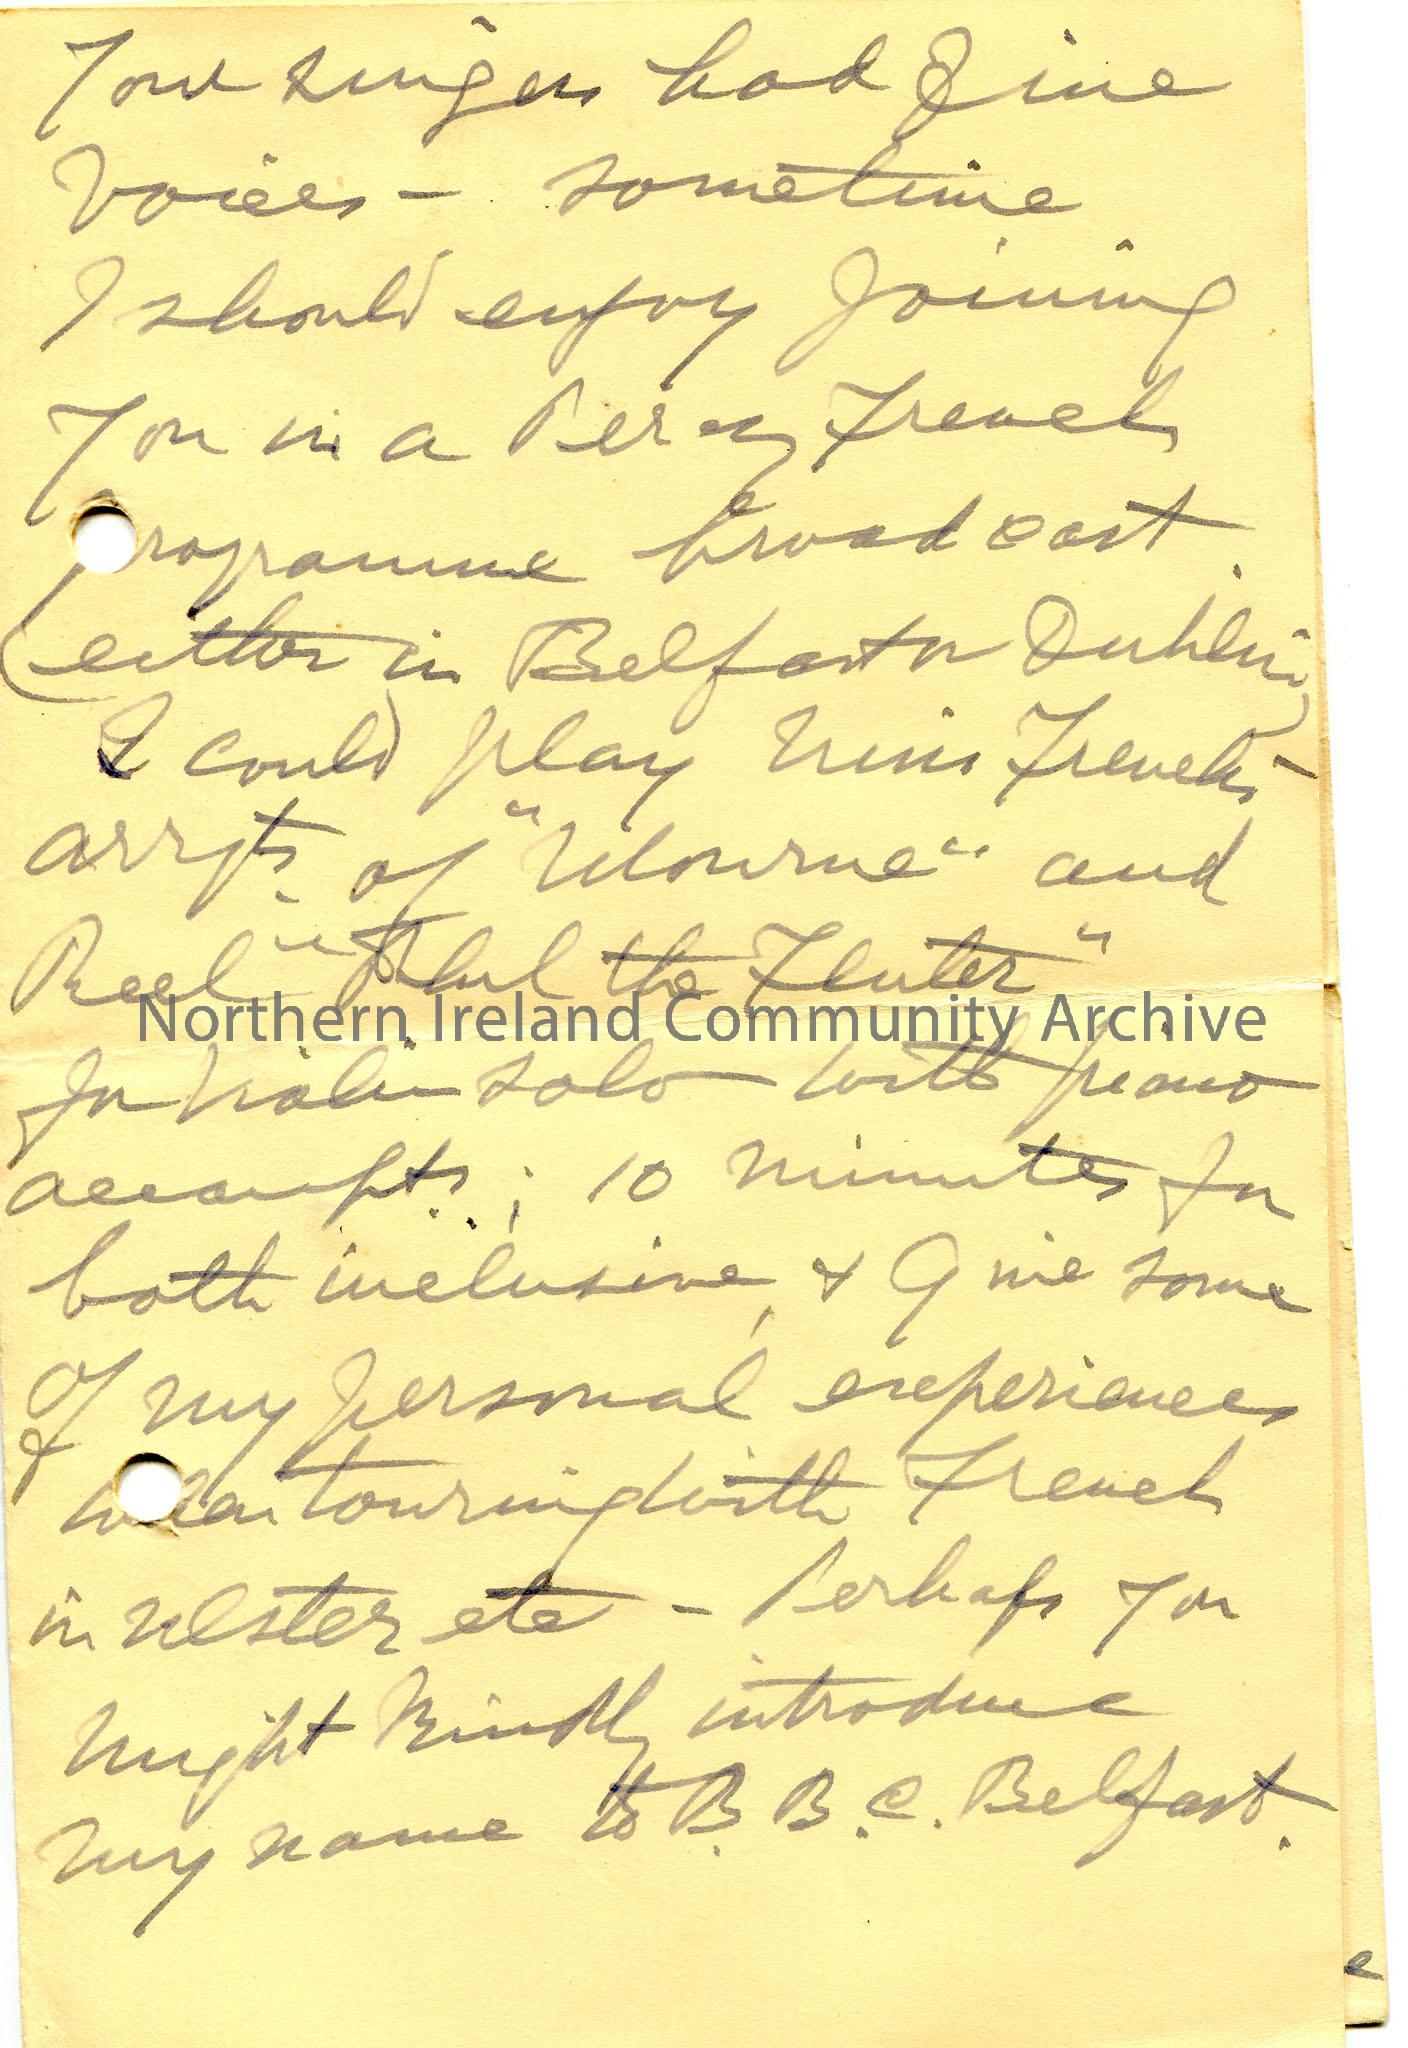 Your singers had fine
voices – sometime
I should enjoy joining
you in a Percy French
programme broadcast.
(either in Belfast or Dublin)
I could play Miss French's
arrgts. of "Mourne" and
Reel "Phil the Fluter"
Northern Ireland Community Archive
for violin solo with piano
accompts.; 10 minutes for
both inclusive, & give some
of my personal experiences
when touring with French
in Ulster etc – Perhaps you
might kindly introduce
my name to B.B.C. Belfast.
e